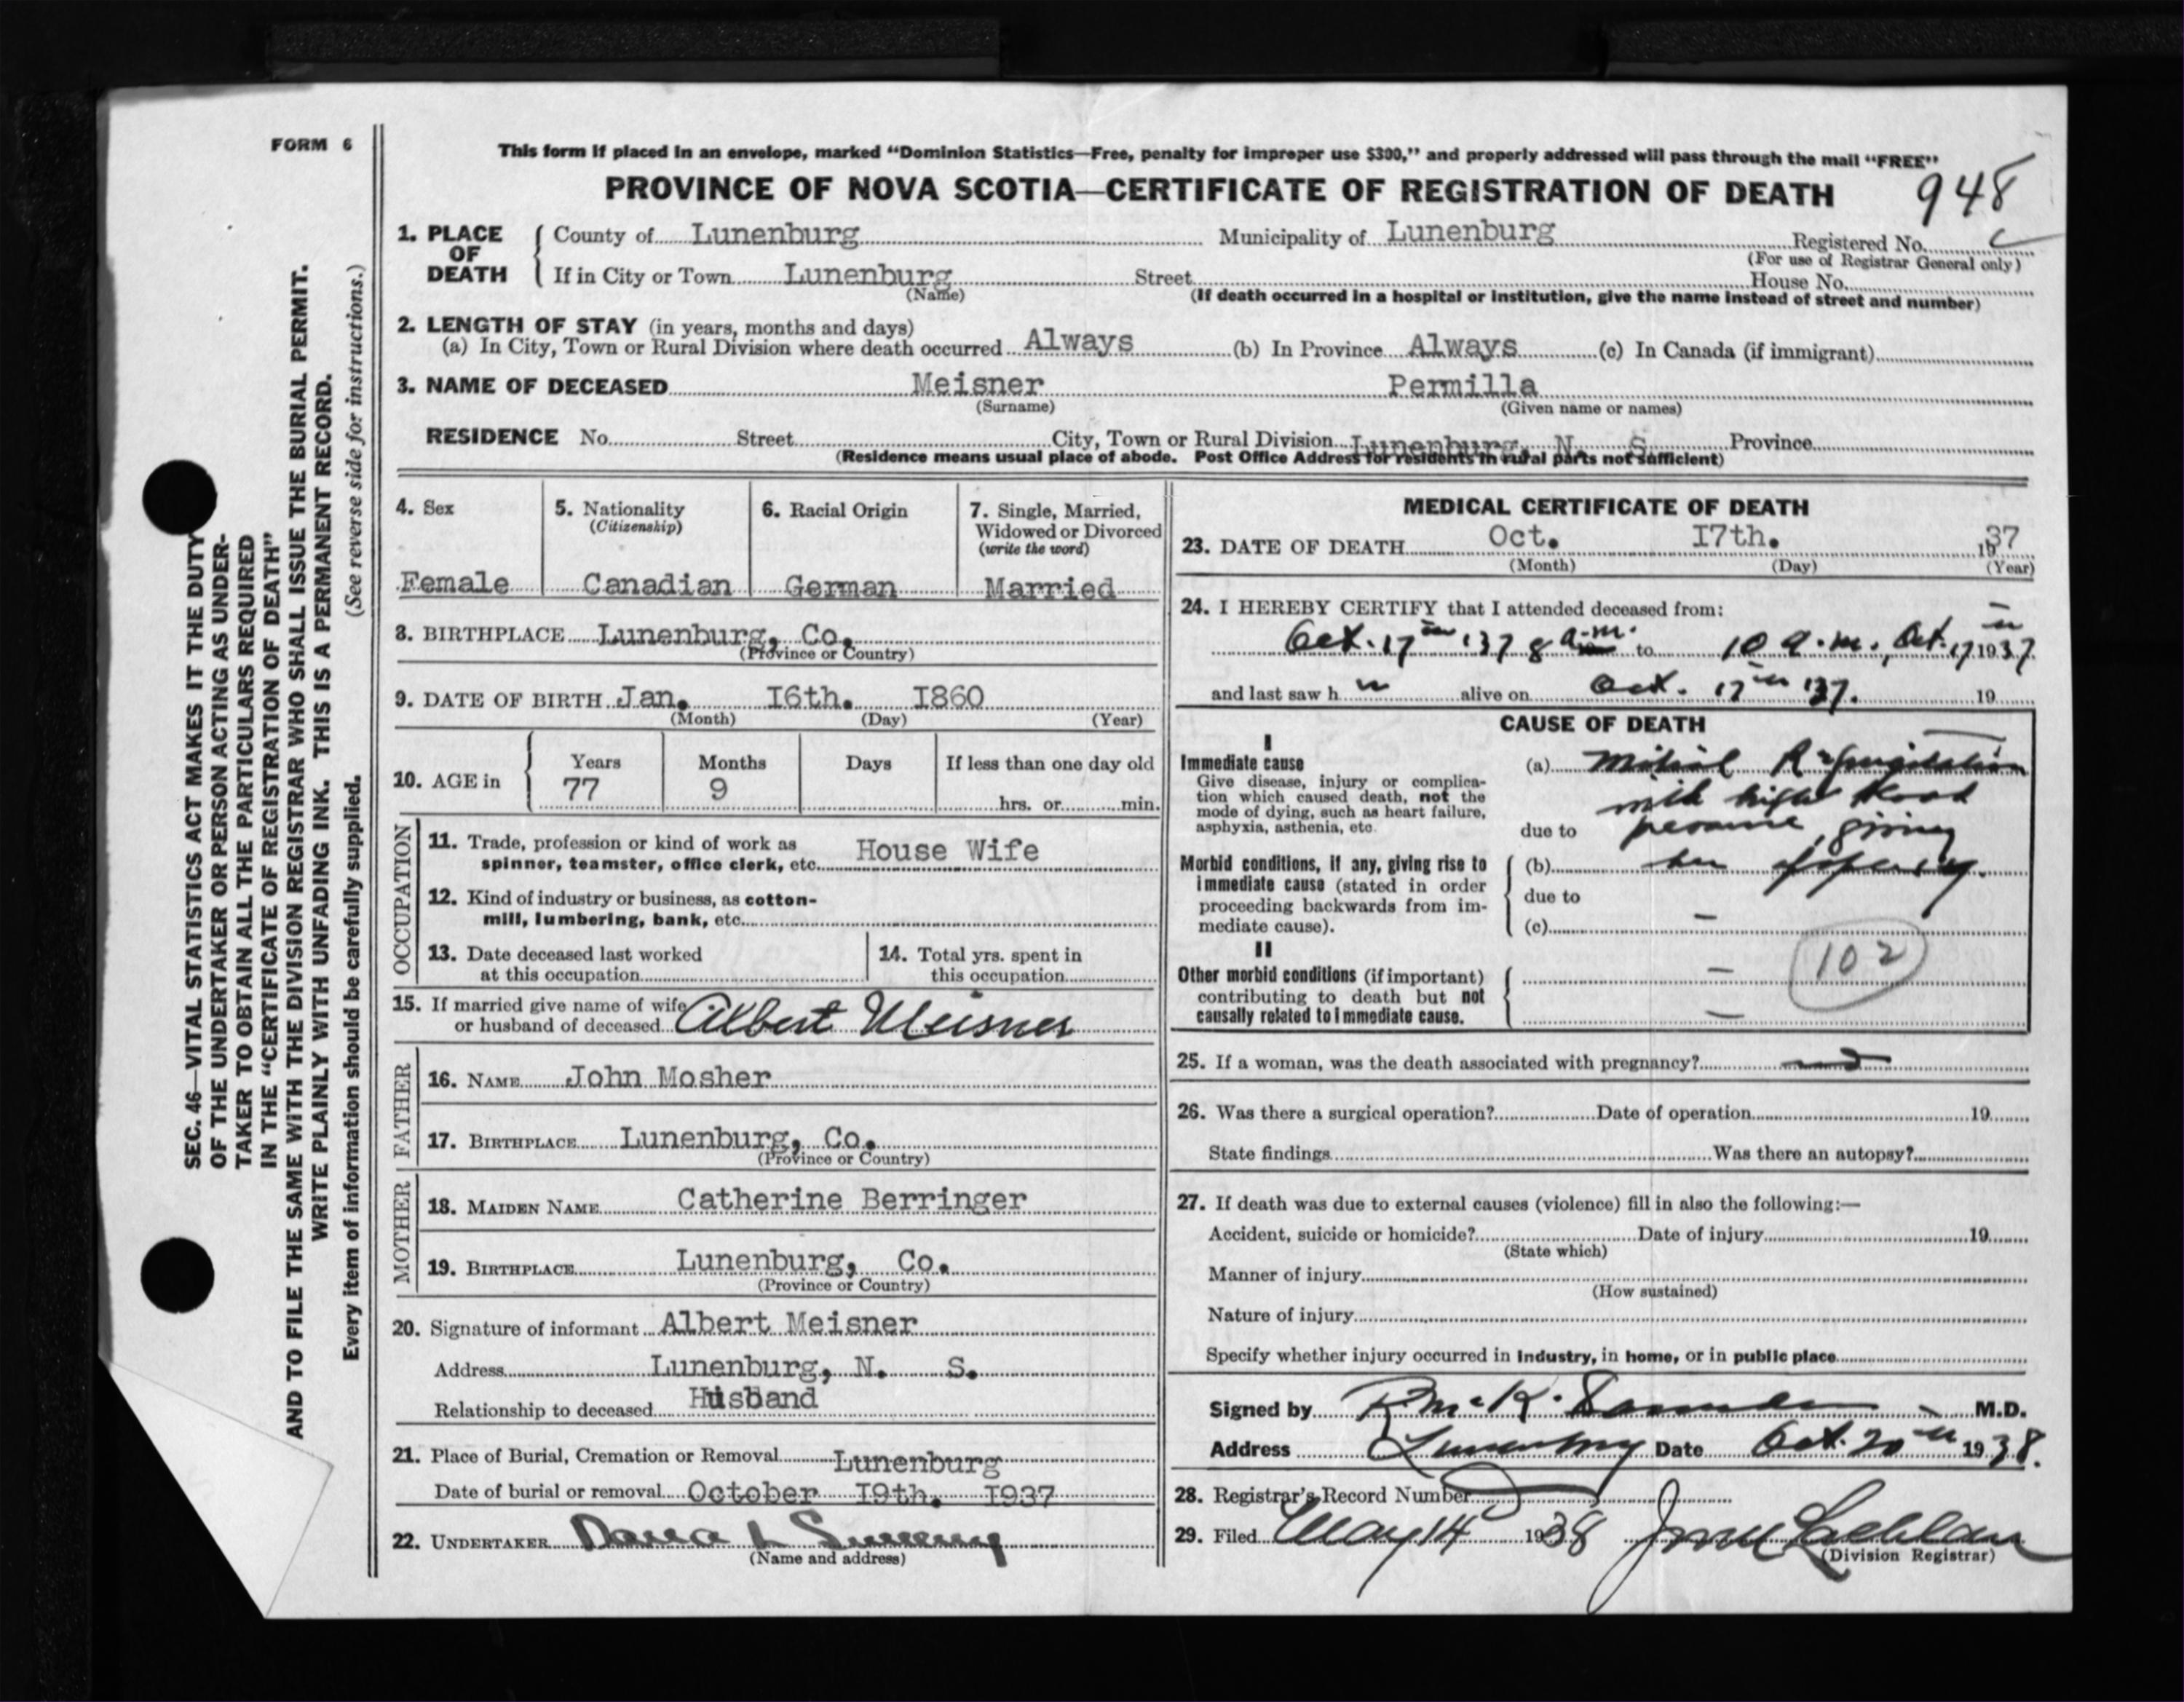 FORM 6
This form if placed in an envelope, marked “Dominion Statistics—Free, penalty for improper use $300,” and properly addressed will pass through the mail “FREE”
PROVINCE OF NOVA SCOTIA—CERTIFICATE OF REGISTRATION OF DEATH
948
1. PLACE OF DEATH
County of Lunenburg Municipality of Lunenburg Registered No.
(For use of Registrar General only)
If in City or Town Lunenburg Street House No.
(Name) (If death occurred in a hospital or institution, give the name instead of street and number)
2. LENGTH OF STAY (in years, months and days)
(a) In City, Town or Rural Division where death occurred Always (b) In Province Always (c) In Canada (if immigrant)
3. NAME OF DECEASED Meisner Permilla
(Surname) (Given name or names)
RESIDENCE No. Street City, Town or Rural Division Lunenburg, N. S. Province
(Residence means usual place of abode. Post Office Address for residents in rural parts not sufficient)
4. Sex
Female
5. Nationality
(Citizenship)
Canadian
6. Racial Origin
German
7. Single, Married,
Widowed or Divorced
(write the word)
Married
8. BIRTHPLACE Lunenburg, Co.
(Province or Country)
9. DATE OF BIRTH Jan. I6th. I860
(Month) (Day) (Year)
10. AGE in
Years Months Days If less than one day old
77 9 hrs. or min.
OCCUPATION
11. Trade, profession or kind of work as
spinner, teamster, office clerk, etc. House Wife
12. Kind of industry or business, as cotton-
mill, lumbering, bank, etc.
13. Date deceased last worked
at this occupation
14. Total yrs. spent in
this occupation
15. If married give name of wife
or husband of deceased Albert Meisner
FATHER
16. NAME John Mosher
17. BIRTHPLACE Lunenburg, Co.
(Province or Country)
MOTHER
18. MAIDEN NAME Catherine Berringer
19. BIRTHPLACE Lunenburg, Co.
(Province or Country)
20. Signature of informant Albert Meisner
Address Lunenburg, N. S.
Relationship to deceased Husband
21. Place of Burial, Cremation or Removal Lunenburg
Date of burial or removal October I9th. I937
22. UNDERTAKER
(Name and address)
MEDICAL CERTIFICATE OF DEATH
23. DATE OF DEATH Oct. I7th. 1937
(Month) (Day) (Year)
24. I HEREBY CERTIFY that I attended deceased from:
Oct. 17th '37 8 a.m. to 10 a.m., Oct. 17 1937
and last saw h alive on Oct. 17th '37. 19
CAUSE OF DEATH
I
Immediate cause
Give disease, injury or complica-
tion which caused death, not the
mode of dying, such as heart failure,
asphyxia, asthenia, etc.
(a) Mitral Regurgitation
with high blood
due to pressure, giving
Morbid conditions, if any, giving rise to
immediate cause (stated in order
proceeding backwards from im-
mediate cause).
(b) her apoplexy.
due to
(c) —
II
Other morbid conditions (if important)
contributing to death but not
causally related to immediate cause.
—
—
102
25. If a woman, was the death associated with pregnancy?
26. Was there a surgical operation? Date of operation 19
State findings Was there an autopsy?
27. If death was due to external causes (violence) fill in also the following:—
Accident, suicide or homicide? Date of injury 19
(State which)
Manner of injury
(How sustained)
Nature of injury
Specify whether injury occurred in industry, in home, or in public place
Signed by M.D.
Address Lunenburg Date Oct. 20th 1938.
28. Registrar's Record Number
29. Filed May 14 1938
(Division Registrar)
SEC. 46—VITAL STATISTICS ACT MAKES IT THE DUTY
OF THE UNDERTAKER OR PERSON ACTING AS UNDER-
TAKER TO OBTAIN ALL THE PARTICULARS REQUIRED
IN THE “CERTIFICATE OF REGISTRATION OF DEATH”
AND TO FILE THE SAME WITH THE DIVISION REGISTRAR WHO SHALL ISSUE THE BURIAL PERMIT.
WRITE PLAINLY WITH UNFADING INK. THIS IS A PERMANENT RECORD.
Every item of information should be carefully supplied. (See reverse side for instructions.)